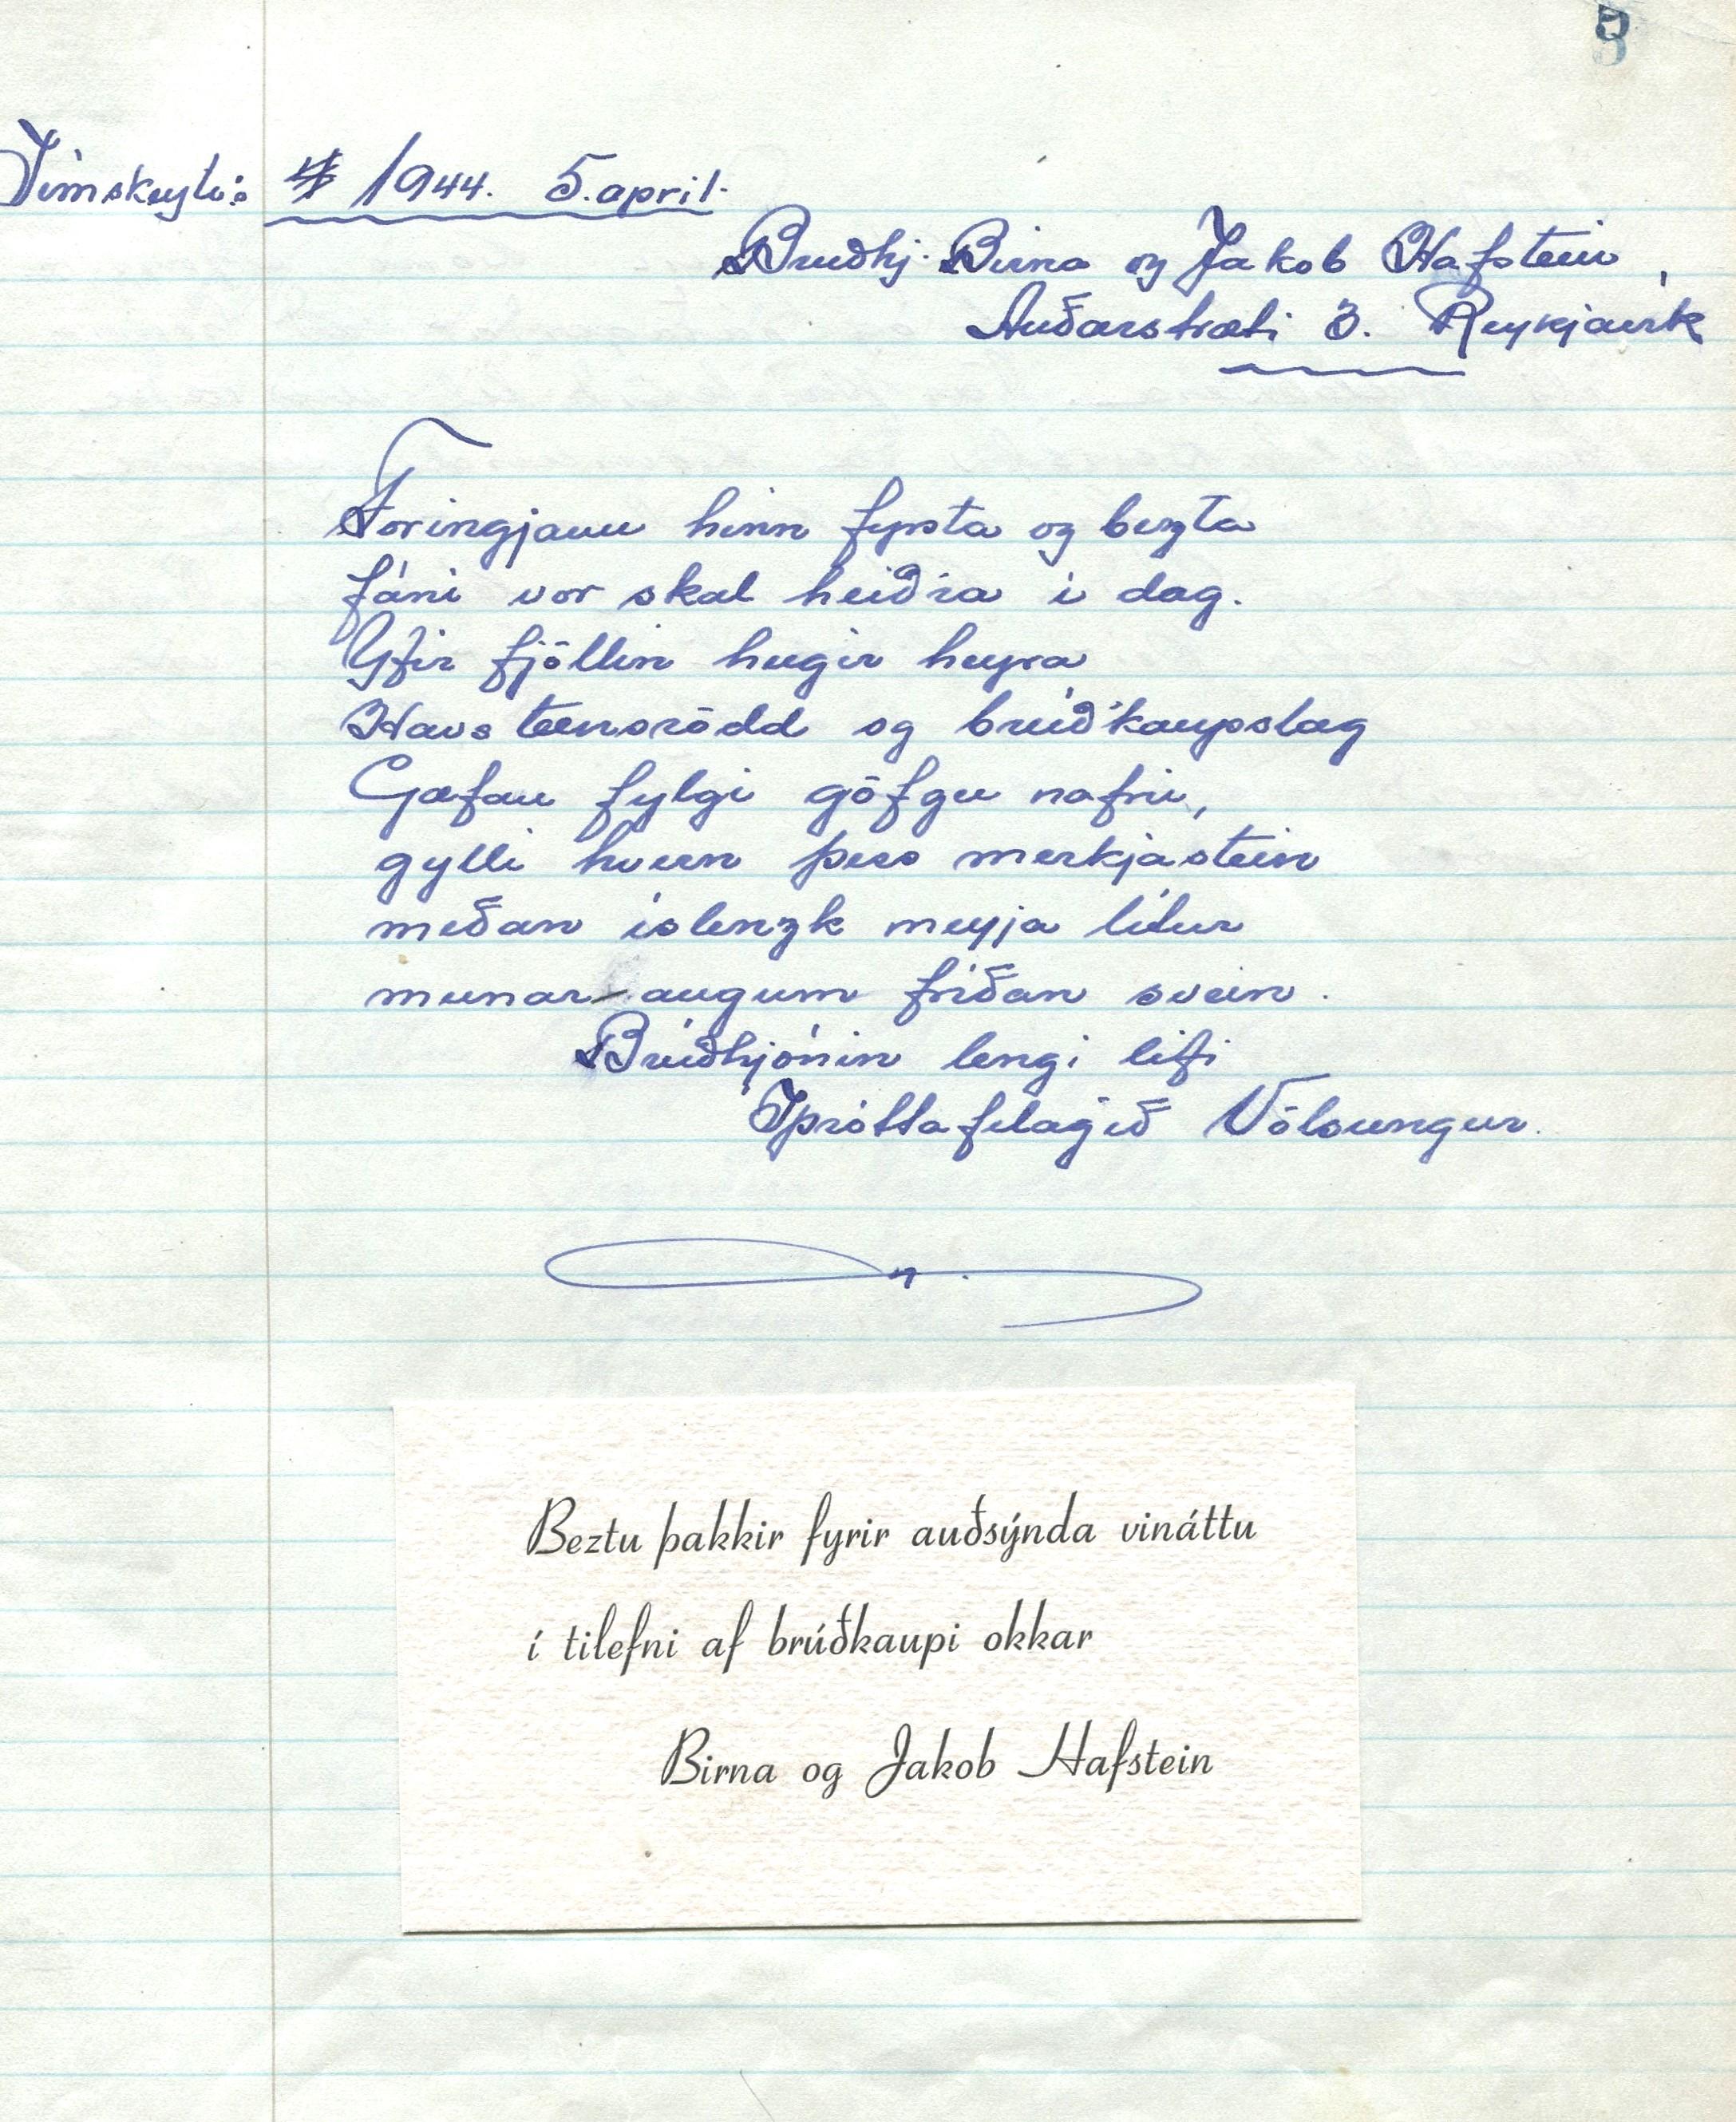 5
Símskeyti: 1944. 5. apríl.
Bruðhj. Birna og Jakob Hafstein,
Auðarstræti 3. Reykjavík
Foringjann hinn fyrsta og bezta
fáni vor skal heiðra í dag.
Yfir fjöllin hugir heyra
Havsteensrödd og brúðkaupslag
Gæfan fylgi göfgu nafni,
gylli hvern þess merkjastein
meðan íslenzk meyja lítur
munar-augum fríðan svein.
Brúðhjónin lengi lifi
Íþróttafélagið Völsungur.
Beztu þakkir fyrir auðsýnda vináttu
í tilefni af brúðkaupi okkar
Birna og Jakob Hafstein